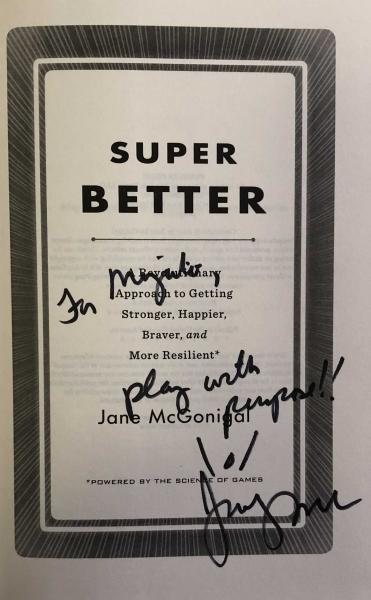 SUPER
BETTER
A Revolutionary
For
Approach to Getting
Stronger, Happier,
Braver, and
More Resilient*
play with
purpose!!
Jane McGonigal
\o/
*POWERED BY THE SCIENCE OF GAMES